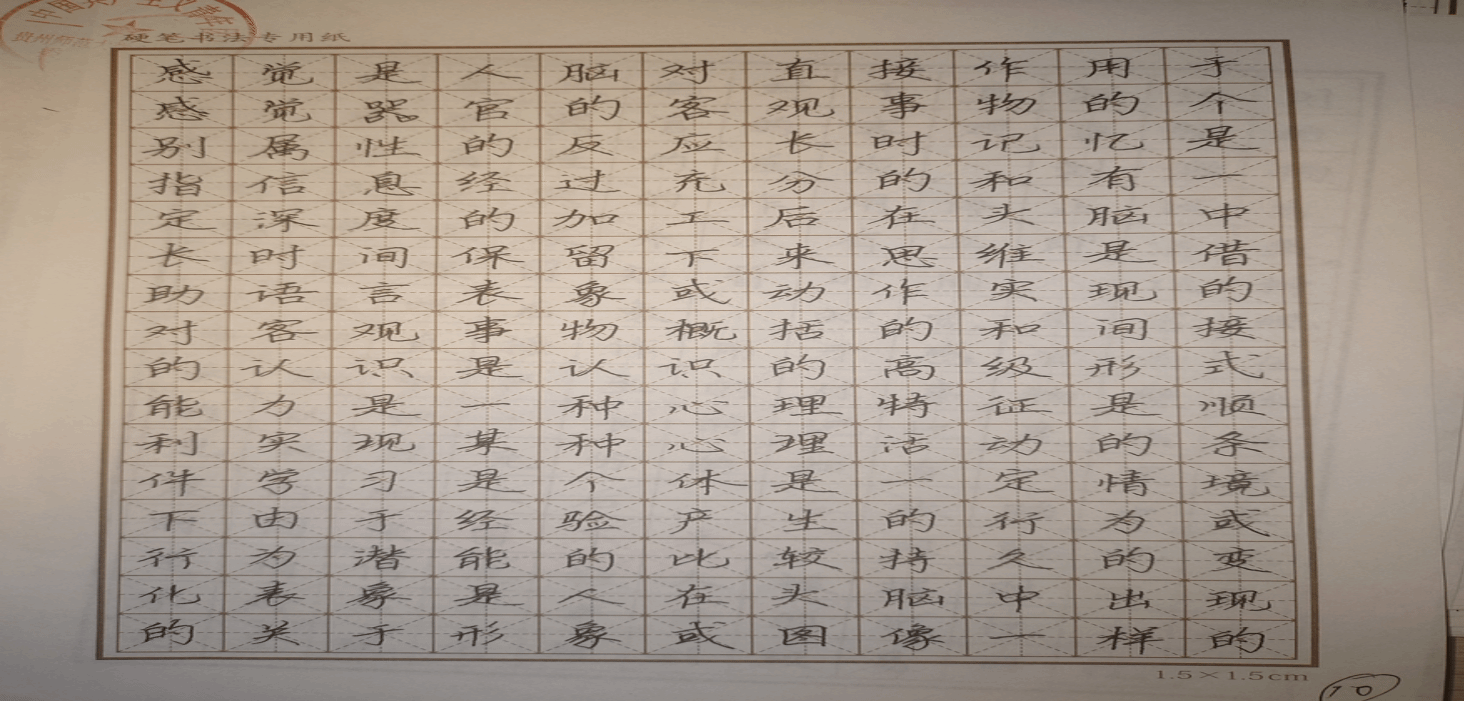 硬笔书法专用纸
感觉是人脑对直接作用于
感觉器官的客观事物的个
别属性的反应长时记忆是
指信息经过充分的和有一
定深度的加工后在头脑中
长时间保留下来思维是借
助语言表象或动作实现的
对客观事物概括的和间接
的认识是认识的高级形式
能力是一种心理特征是顺
利实现某种心理活动的条
件学习是个体是一定情境
下由于经验产生的行为或
行为潜能的比较持久的变
化表象是人在头脑中出现
的关于形象或图像一样的
1.5×1.5cm
10